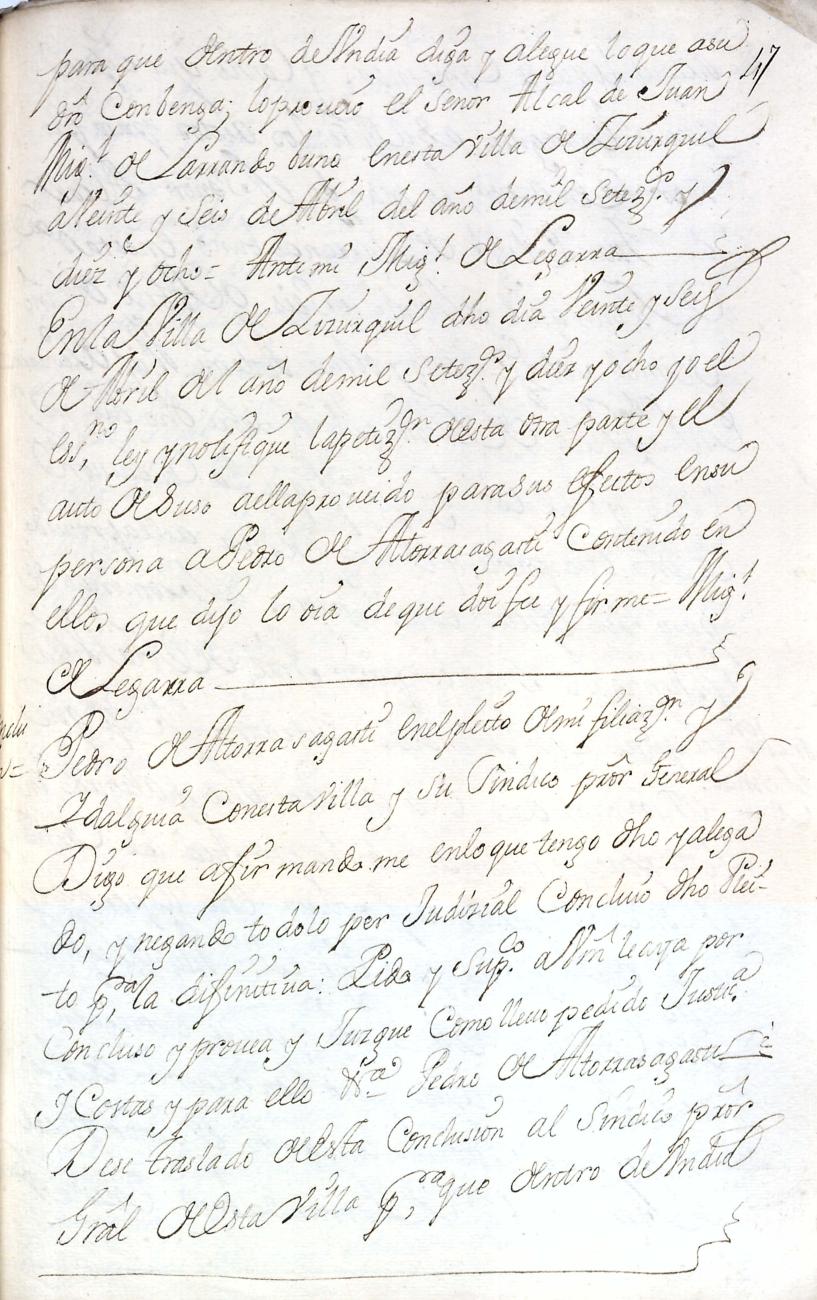 47
para que dentro de Vn dia diga y alegue lo que a su
dro Conbenga; lo proueio el señor Alcalde Juan
Migl de Larrando buno en esta Villa de Zizurquil
a Veinte y Seis de Abril del año de mil Setezos y
diez y ocho = Ante mi Migl de Legarra
En la Villa de Zizurquil dho dia Veinte y Seis
de Abril del año de mil Setezos y diez y ocho yo el
essno ley y notifique la petizon de esta otra parte y el
auto de Suso a ella proueido para sus efectos en su
persona a Pedro de Atorrasagasti Contenido en
ellos que dijo lo oia de que doi fee y firme = Migl
de Legarra
Pedro de Atorrasagasti en el pleito de mi filiazon y
Idalguia Con esta Villa y su Sindico pror General
Digo que afirmandome en lo que tengo dho y alega
do, y negando todo lo perjudizial Concluio dho Plei-
to pa la difinitiua: Pido y Supco a Vm le aya por
Concluso y prouea y Juzgue Como lleuo pedido Justica
y Costas y para ello Pedro de Atorrasagasti
Dese traslado de esta Conclusion al Sindico pror
Gral de esta Villa pa que dentro de Vn dia